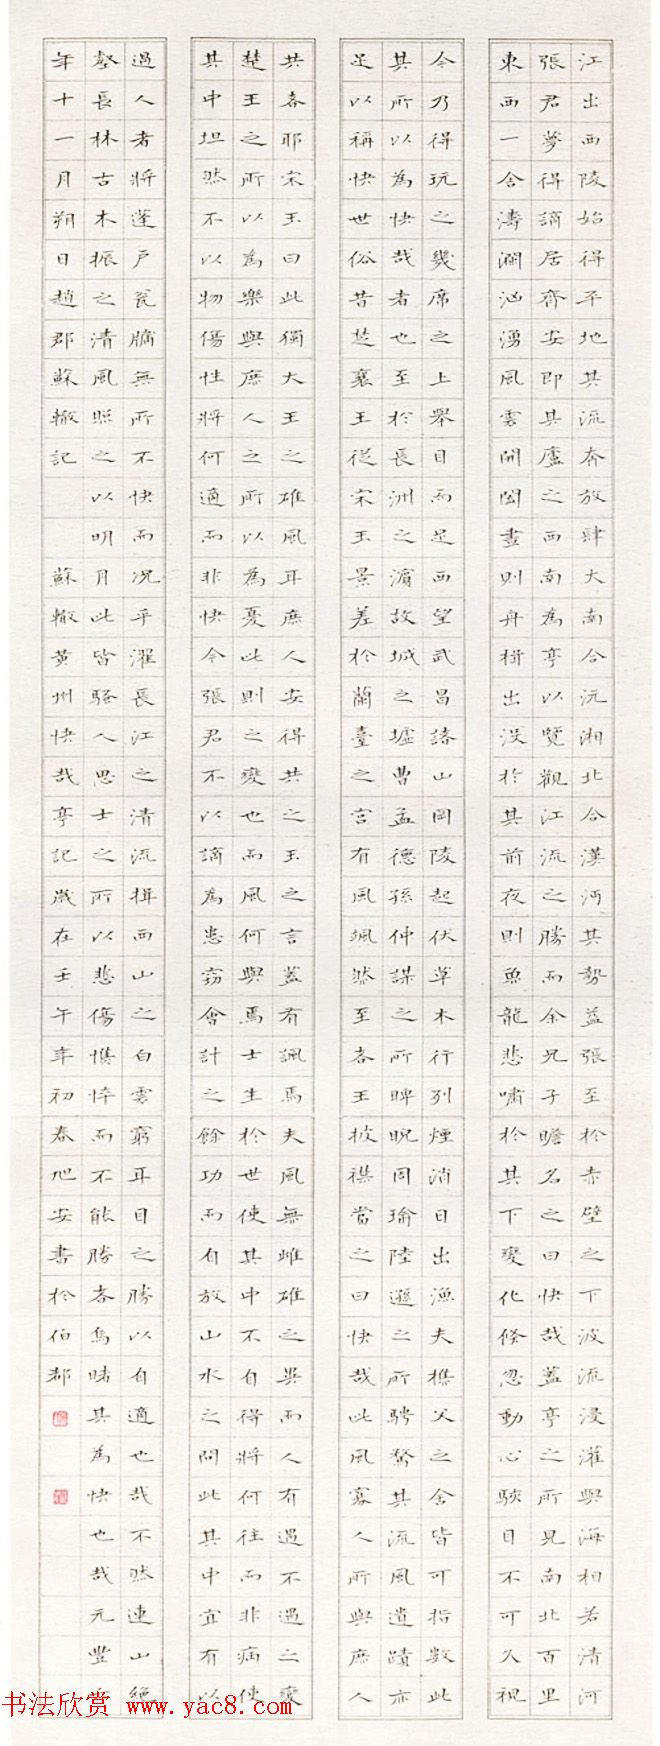 江出西陵始得平地其流奔放肆大南合沅湘北合漢沔其勢益張至於赤壁之下波流浸灌與海相若清河
張君夢得謫居齊安即其廬之西南為亭以覽觀江流之勝而余兄子瞻名之曰快哉蓋亭之所見南北百里
東西一舍濤瀾洶湧風雲開闔晝則舟楫出沒於其前夜則魚龍悲嘯於其下變化倏忽動心駭目不可久視
今乃得玩之幾席之上舉目而足西望武昌諸山岡陵起伏草木行列煙消日出漁夫樵父之舍皆可指數此
其所以為快哉者也至於長洲之濱故城之墟曹孟德孫仲謀之所睥睨周瑜陸遜之所騁騖其流風遺蹟亦
足以稱快世俗昔楚襄王從宋玉景差於蘭臺之宮有風颯然至者王披襟當之曰快哉此風寡人所與庶人
共者耶宋玉曰此獨大王之雄風耳庶人安得共之玉之言蓋有諷焉夫風無雌雄之異而人有遇不遇之變
楚王之所以為樂與庶人之所以為憂此則之變也而風何與焉士生於世使其中不自得將何往而非病使
其中坦然不以物傷性將何適而非快今張君不以謫為患竊會計之餘功而自放山水之間此其中宜有以
過人者將蓬戶甕牖無所不快而況乎濯長江之清流揖西山之白雲窮耳目之勝以自適也哉不然連山絕
壑長林古木振之清風照之以明月此皆騷人思士之所以悲傷憔悴而不能勝者烏睹其為快也哉元豐六
年十一月朔日趙郡蘇轍記 蘇轍黃州快哉亭記歲在壬午年初春旭安書於伯都
书法欣赏 www.yac8.com